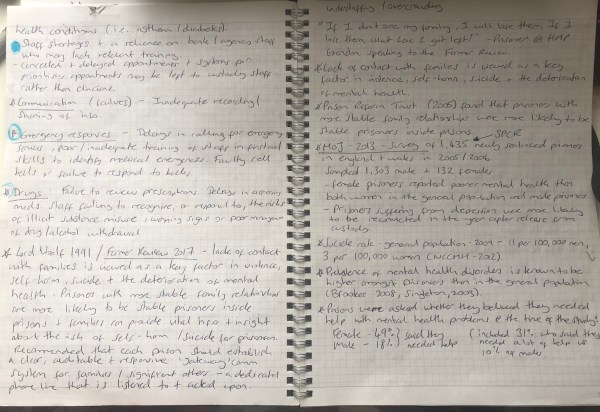 health conditions (i.e. asthma / diabetes).
Staff shortages + a reliance on bank / agency staff
who may lack relevant training.
cancelled + delayed appointments + systems for
prioritising appointments may be left to custody staff
rather than clinicians.
* Communication / (failures) - Inadequate recording /
sharing of info.
* Emergency responses - Delays in calling for emergency
services, poor / inadequate training of staff in first aid
skills to identify medical emergencies. Faulty cell
bells or failure to respond to bells.
* Drugs - Failure to review prescriptions. Delays in
meds. Staff failing to recognise, or respond to, the risks
of illicit substance misuse, warning signs or poor management
of drug / alcohol withdrawal
* Lord Woolf 1991 / Farmer Review 2017 - lack of contact
with families is viewed as a key factor in violence,
self-harm, suicide + the deterioration of mental
health - Prisoners with more stable family relationships
are more likely to be stable prisoners inside
prisons + families can provide vital info + insight
about the risk of self-harm / suicide for prisoners.
Recommended that each prison should establish
a clear, auditable + responsive 'gateway' comm
system for families / significant others - a dedicated
phone line that is listened to + acted upon.
understaffing / overcrowding
"If I don't see my family, I will lose them. If I
lose them, what have I got left?" - Prisoner @ HMP
speaking to the Farmer Review
* Lack of contact with families is viewed as a key
factor in violence, self-harm, suicide + the deterioration
of mental health.
* Prison Reform Trust (2005) found that prisoners with
more stable family relationships were more likely to be
stable prisoners inside prisons.
SPCR
* MOJ - 2013 - Survey of 1,435 newly sentenced prisoners
in england + wales in 2005/2006
Sampled 1,303 male + 132 females
- female prisoners reported poorer mental health than
both women in the general population and male prisoners
- Prisoners suffering from depression were more likely
to be reconvicted in the year after release from
custody.
* Suicide rate - general population - 2009 - 11 per 100,000 men,
3 per 100,000 women (NCCMH - 2012)
* Prevalence of mental health disorders is known to be
higher amongst prisoners than in the general population
(Brooker 2008, Singleton, 2003)
* Prisoners were asked whether they believed they needed
help with mental health problems @ the time of the study:
Female - 49% } said they (included 31% who said they
Male - 18% } needed help needed a lot of help vs
10% of males